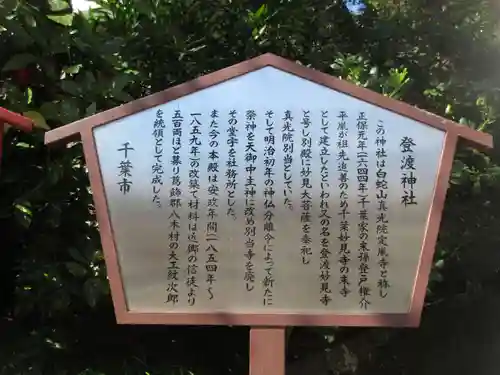 登渡神社
この神社は白蛇山真光院定胤寺と称し
正保元年(一六四四年)千葉家の末孫登戸権介
平胤が祖先追善のため千葉妙見寺の末寺
として建立したといわれ又の名を登渡妙見寺
と号し別殿に妙見大菩薩を奉祀し
真光院別当としていた。
そして明治初年の神仏分離令によって新たに
祭神を天御中主神に改め別当寺を廃し
その堂宇を社務所とした。
また今の本殿は安政年間(一八五四年~
一八五九年)の改築で材料は近郷の信徒より
五百両ほど募り葛飾郡八木村の大工紋次郎
を統領として完成した。
千葉市